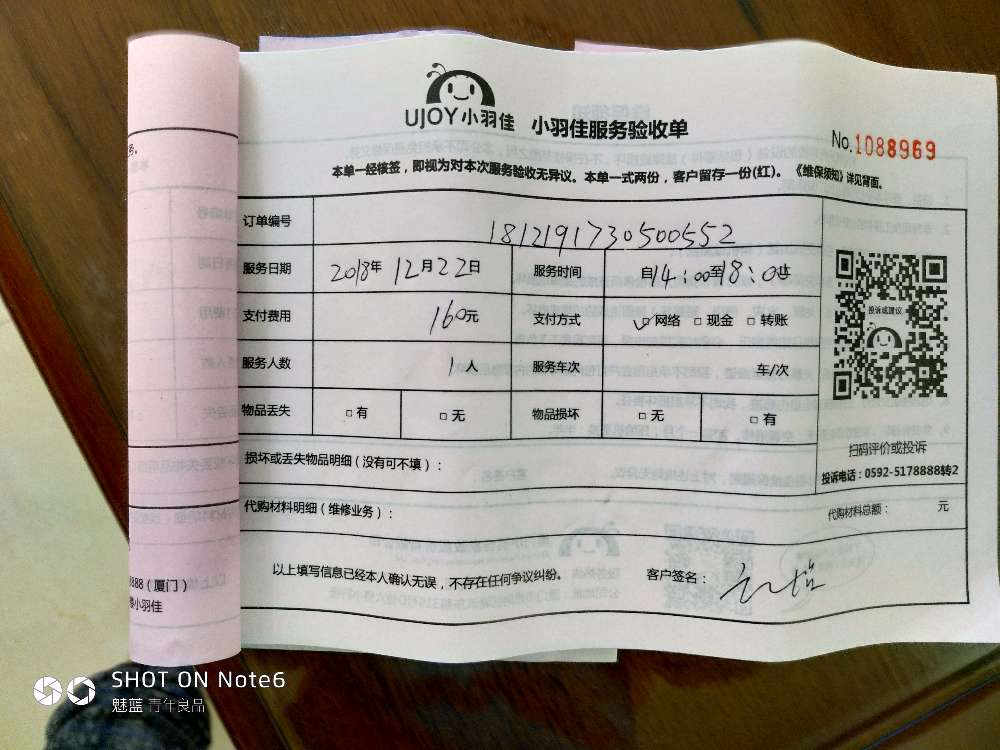 UJOY小羽佳 小羽佳服务验收单
No.1088969
本单一经核签，即视为对本次服务验收无异议。本单一式两份，客户留存一份(红)。《维保须知》详见背面。
订单编号 1812191730500552
服务日期 2018年12月22日 服务时间 自14:00至18:00止
支付费用 160元 支付方式 ✓□网络 □现金 □转账
投诉或建议
服务人数 1人 服务车次 车/次
物品丢失 □有 □无 物品损坏 □无 □有
扫码评价或投诉
损坏或丢失物品明细（没有可不填）：
投诉电话：0592-5178888转2
代购材料明细（维修业务）：
代购材料总额： 元
以上填写信息已经本人确认无误，不存在任何争议纠纷。 客户签名：
888（厦门）
小羽佳
SHOT ON Note6
魅蓝 青年良品